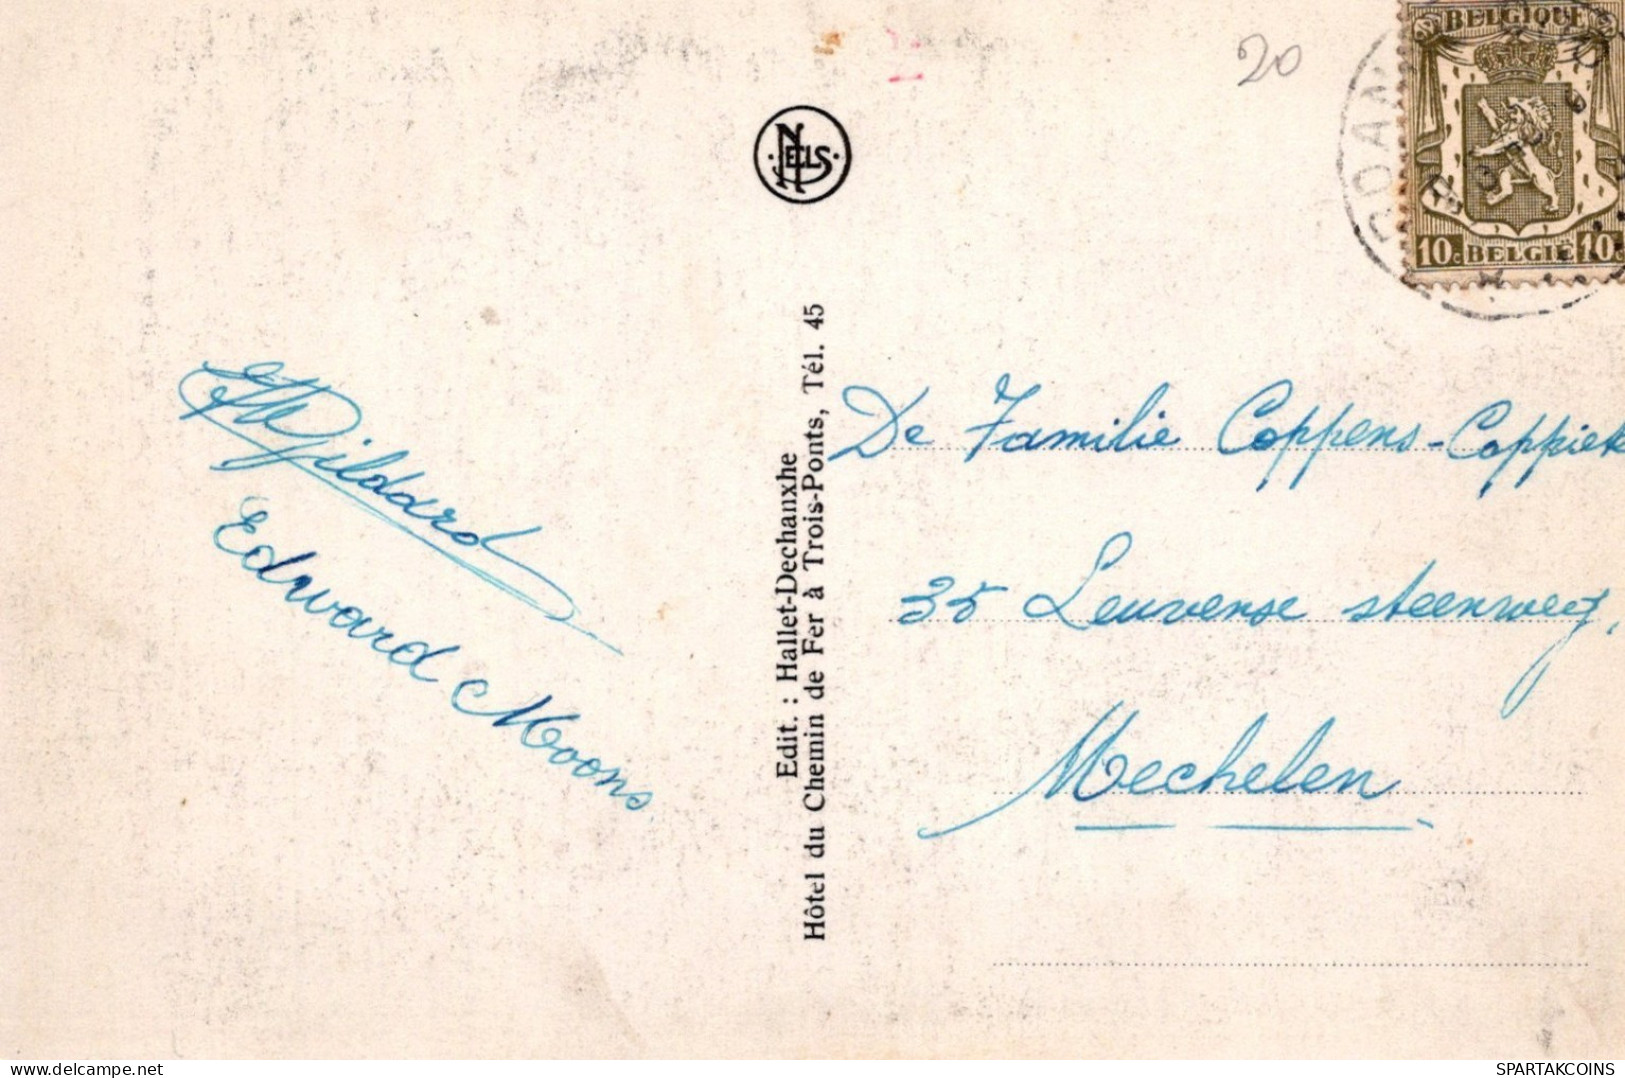 20
BELGIQUE
10c BELGIE 10c
NELS
Edit. : Hallet-Dechanxhe
Hôtel du Chemin de Fer à Trois-Ponts, Tél. 45
De Familie Coppens-Coppiet
35 Leuvense steenweg,
Mechelen
Edward Moons.
delcampe.net
SPARTAKCOINS